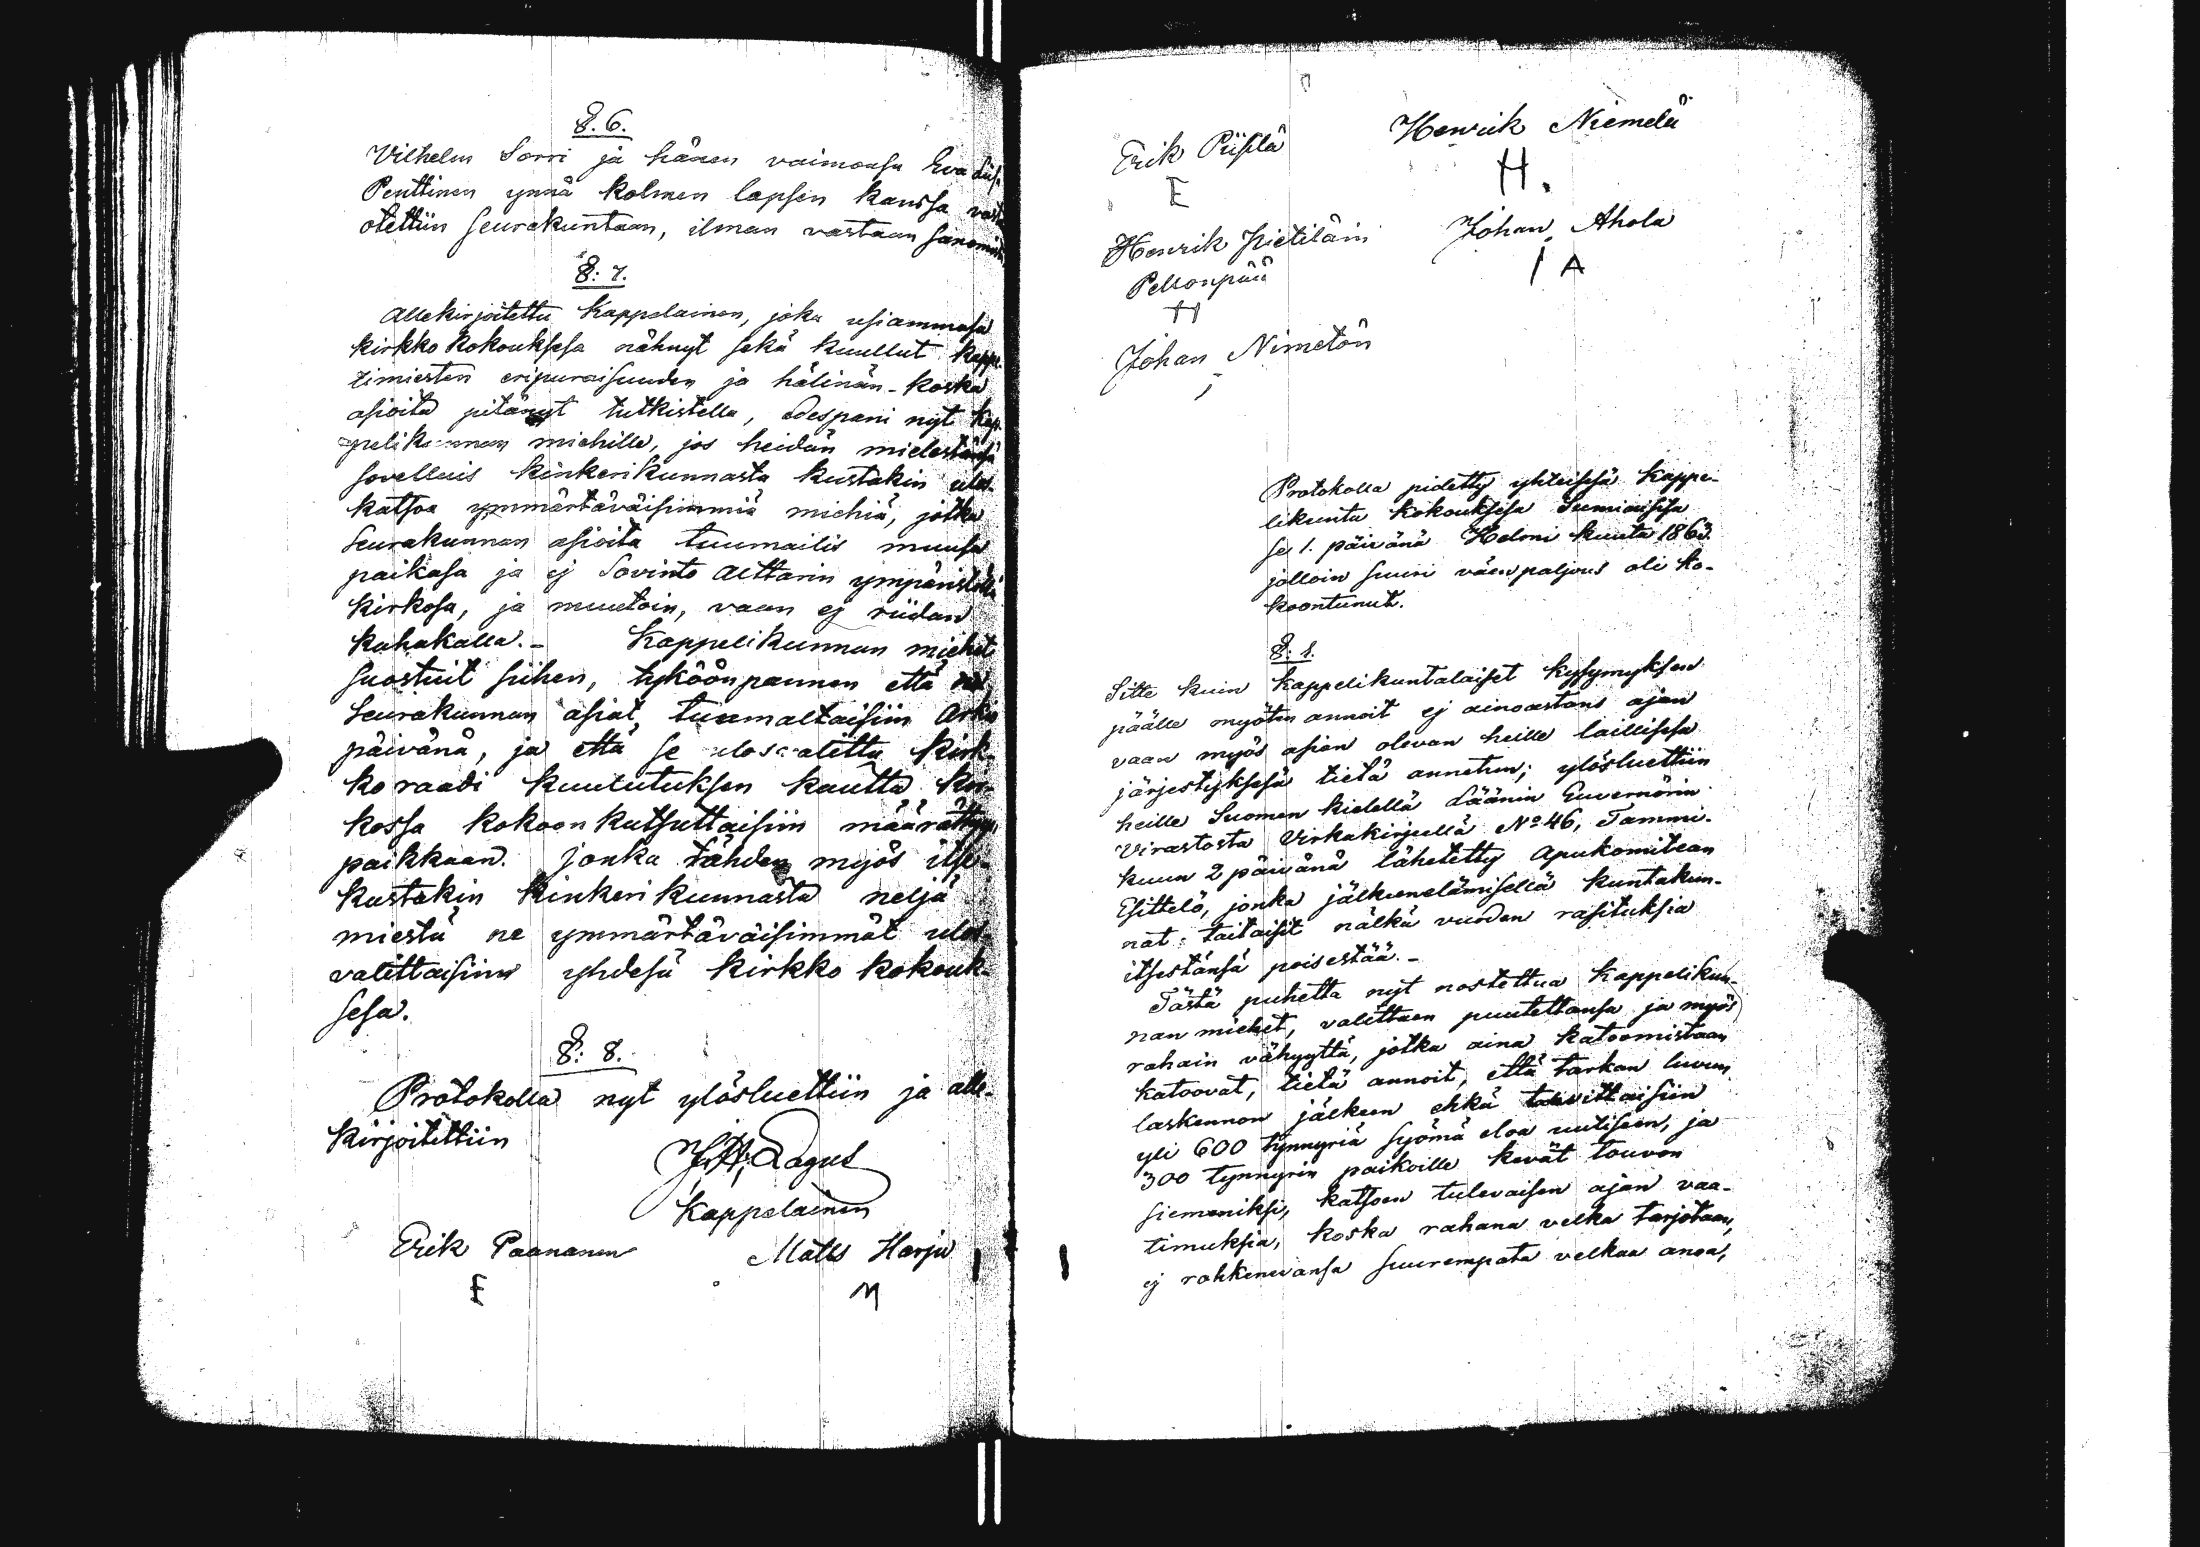 §. 6.
Vilhelm Sorri ja hänen vaimonsa Eva Liisa
Penttinen ynnä kolmen lapsen kanssa vasta
otettiin seurakuntaan, ilman vastaan sanomista.
§: 7.
Allekirjoitettu Kappelainen, joka usiammasa
kirkko kokouksesa nähnyt sekä kuullut kappe-
limiesten eripuraisuuden ja hälinän - koska
asioita pitänyt tutkistella, edespani nyt kap-
pelikunnan miehille, jos heidän mielestänsä
sovelluis kinkerikunnasta kustakin ulos-
katsoa ymmärtäväisimmiä miehiä, jotka
Seurakunnan asioita tuumailis muusa
paikasa ja ej Sovinto Alttarin ympäristöllä
kirkosa, ja muutoin, vaan ej riidan
kahakalla. - Kappelikunnan miehet
suostuit siihen, tyköönpannen että ne
Seurakunnan asiat, tuumaltaisiin Arki
päivänä, ja että se ulosvalittu kirk-
ko raadi kuulutuksen kautta kir-
kossa kokoon kutsuttaisiin määrättyyn
paikkaan. jonka tähden myös itse-
kustakin kinkerikunnasta neljä
miestä ne ymmärtäväisimmät ulos-
valittaisiin yhdesä kirkko kokouk-
sesa.
§: 8.
Protokolla nyt ylösluettiin ja alle-
kirjoitettiin
Lagus
Kappelainen
Erik Paananen Matts Harju
E M
Erik Piisilä Henrik Niemelä
E H.
Henrik Pietiläin Johan Ahola
Pelsonpää I A
H
Johan Nimetön
Protokolla pidetty yhteisesä kappe-
likunta kokouksesa Sumiaisisa
se 1. päivänä Helmi kuuta 1863.
jolloin suuri väenpaljous oli ko-
koontunut.
§: 1.
Sitte kuin kappelikuntalaiset kysymyksen
päälle myöten annoit ej ainoastans ajan
vaan myös asian olevan heille laillisesa
järjestyksesä tietä annetun; ylösluettiin
heille Suomen kielellä Läänin Guvernörin
Virastosta Virkakirjeellä No 46, Tammi-
kuun 2 päivänä lähetetty Apukomitean
Esittelö, jonka jälkeenelämisellä kuntakun-
nat taitaisit nälkä vuoden rasituksia
itsestänsä poisestää. -
Tästä puhetta nyt nostettua Kappelikun-
nan miehet, valittaen puutettansa ja myös
rahain vähyyttä, jotka aina katoomistaan
katoovat, tietä annoit, että tarkan luvun
laskennon jälkeen ehkä tarvittaisiin
yli 600 tynnyriä syömä eloa uutiseen, ja
300 tynnyrin paikoille kevät touvon
siemeniksi, katsoen tulevaisen ajan vaa-
timuksia, koska rahana velka tarjotaan,
ej rohkenevansa suurempata velkaa anoa,